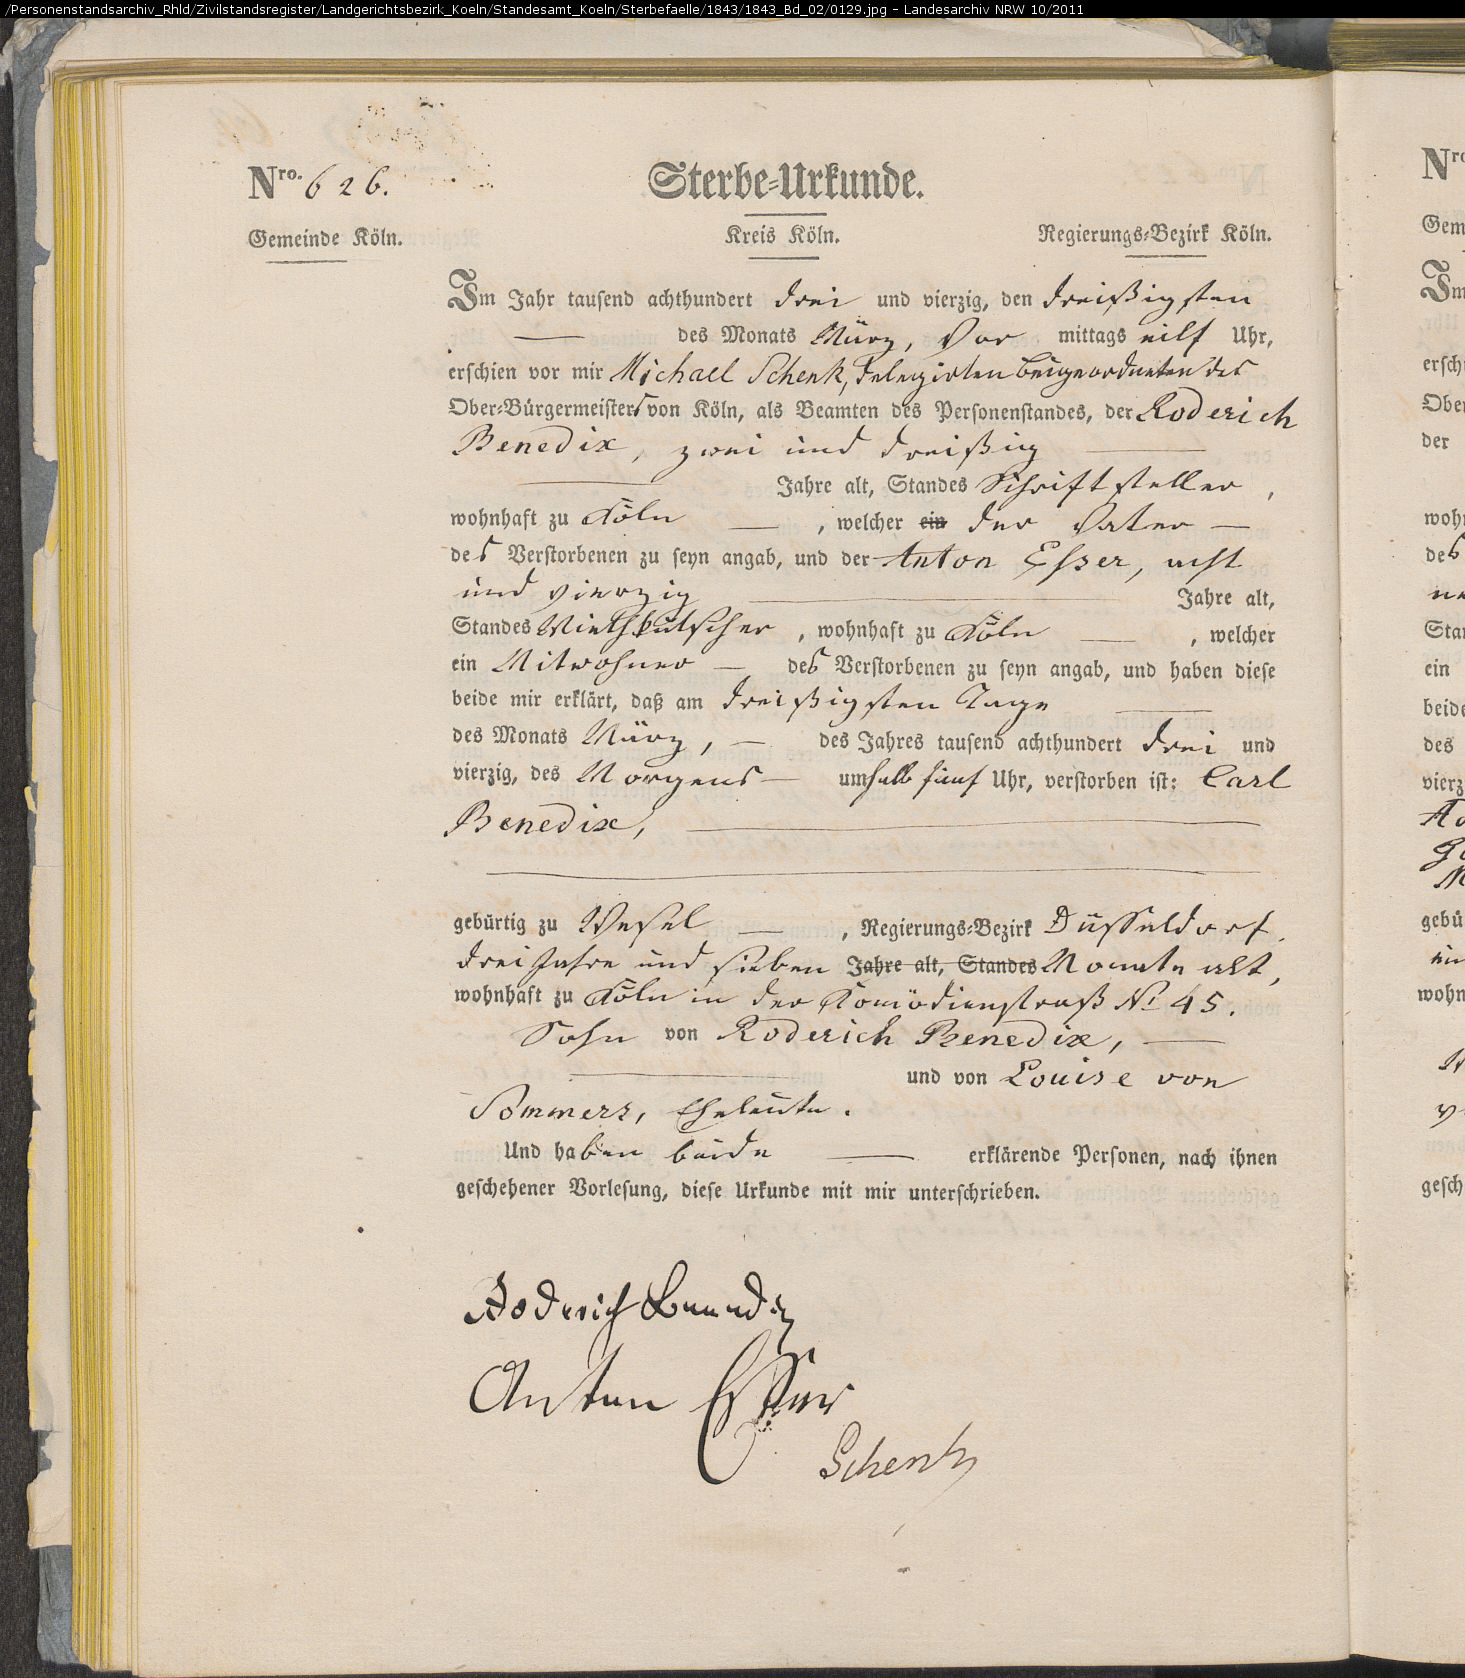 /Personenstandsarchiv_Rhld/Zivilstandsregister/Landgerichtsbezirk_Koeln/Standesamt_Koeln/Sterbefaelle/1843/1843_Bd_02/0129.jpg - Landesarchiv NRW 10/2011
Nro. 626. Sterbe-Urkunde.
Gemeinde Köln. Kreis Köln. Regierungs-Bezirk Köln.
Im Jahr tausend achthundert drei und vierzig, den dreißigsten
— des Monats März, Vor mittags eilf Uhr,
erschien vor mir Michael Schenk, delegirten Beigeordneten des
Ober-Bürgermeisters von Köln, als Beamten des Personenstandes, der Roderich
Benedix, zwei und dreißig —
— Jahre alt, Standes Schriftsteller,
wohnhaft zu Köln —, welcher ein der Vater —
des Verstorbenen zu seyn angab, und der Anton Esser, acht
und vierzig — Jahre alt,
Standes Miethkutscher, wohnhaft zu Köln —, welcher
ein Mitwohner — des Verstorbenen zu seyn angab, und haben diese
beide mir erklärt, daß am dreißigsten Tage —
des Monats März, — des Jahres tausend achthundert drei und
vierzig, des Morgens — um halb fünf Uhr, verstorben ist: Carl
Benedix, —
gebürtig zu Wesel —, Regierungs-Bezirk Düsseldorf,
drei Jahre und sieben Jahre alt, Standes Monate alt,
wohnhaft zu Köln in der Komödienstraß No 45.
Sohn von Roderich Benedix, —
— und von Louise von
Sommers, Eheleute.
Und haben beide — erklärende Personen, nach ihnen
geschehener Vorlesung, diese Urkunde mit mir unterschrieben.
Roderich Benedix
Anton Esser
Schenk
Nro
Gem
Im
ersch
Ober
der
wohn
des
Stan
ein
beide
des
vierz
gebü
wohn
gesch